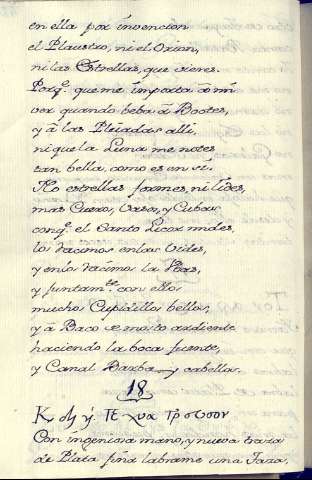 en ella por invencion
el Plaustro, ni el Orion,
ni las Estrellas, que vieres.
Porq.e que me importa à mi
ver quando beba à Bootes,
y à las Pleiadas alli,
ni que la Luna me notes
tan bella, como es en sí.
No estrellas formes, ni
mas Cuero, Vaso, y Cubas
conq.e el Santo Licor mides,
los racimos en las Vides,
y en los racimos la
y juntam.te con ellos
muchos Cupidillos bellos,
y à Baco de mosto ardiente
haciendo la boca fuente,
y Canal Barba y cabellos.
18
Con ingeniosa mano, y nueva traza
de Plata fina labrame una Taza,